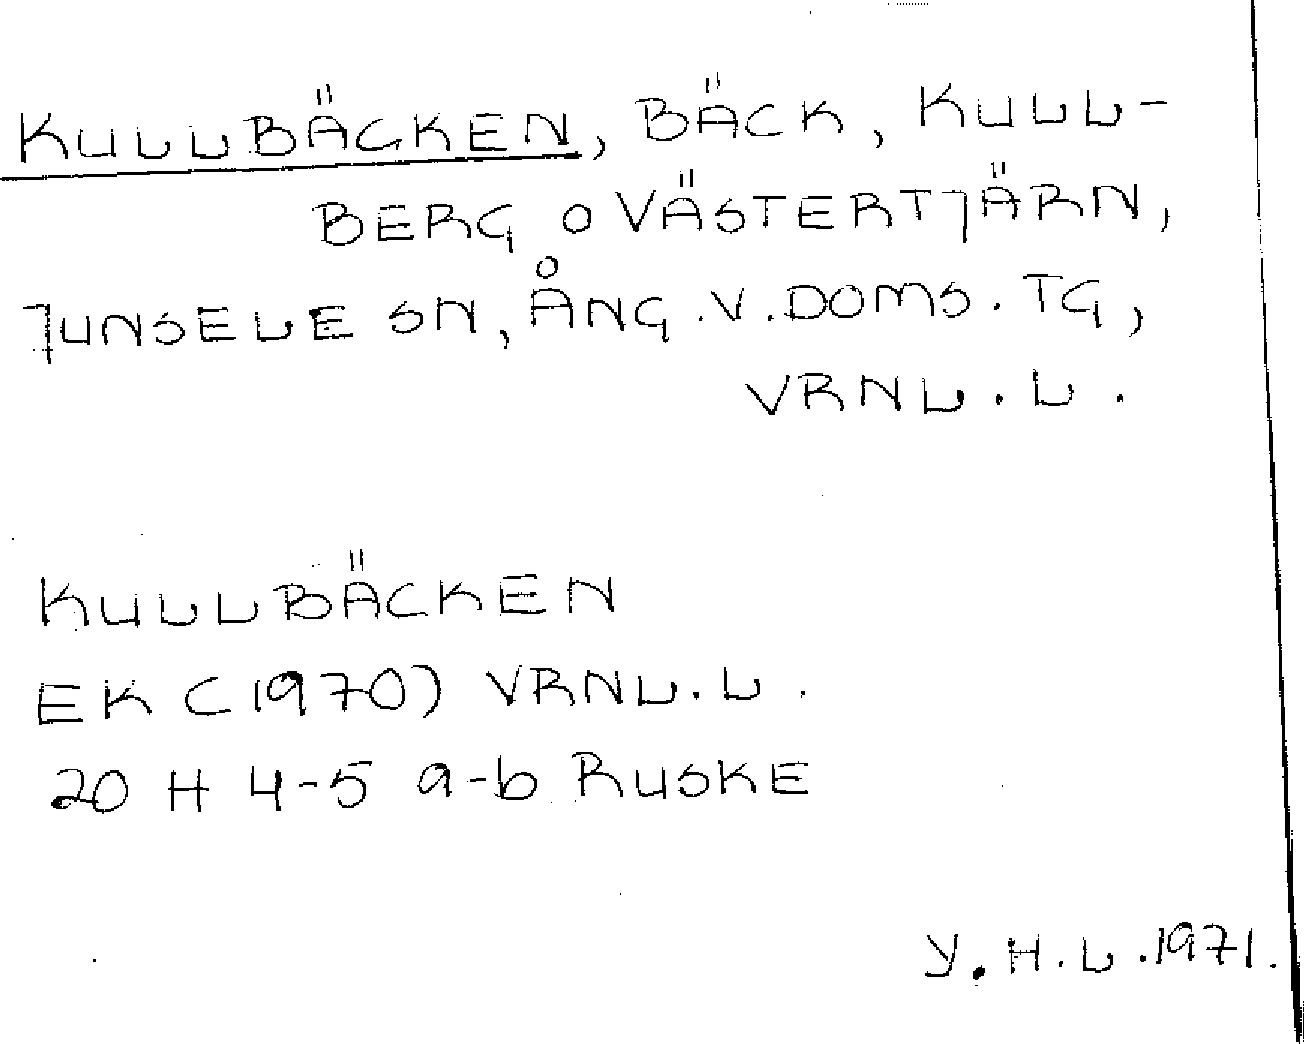 KULLBÄCKEN, BÄCK, KULL-
BERG O VÄSTERTJÄRN,
JUNSELE SN, ÅNG.V.DOMS.TG,
VRNL.L.
KULLBÄCKEN
EK (1970) VRNL.L.
20 H 4-5 a-b RUSKE
Y.H.L.1971.